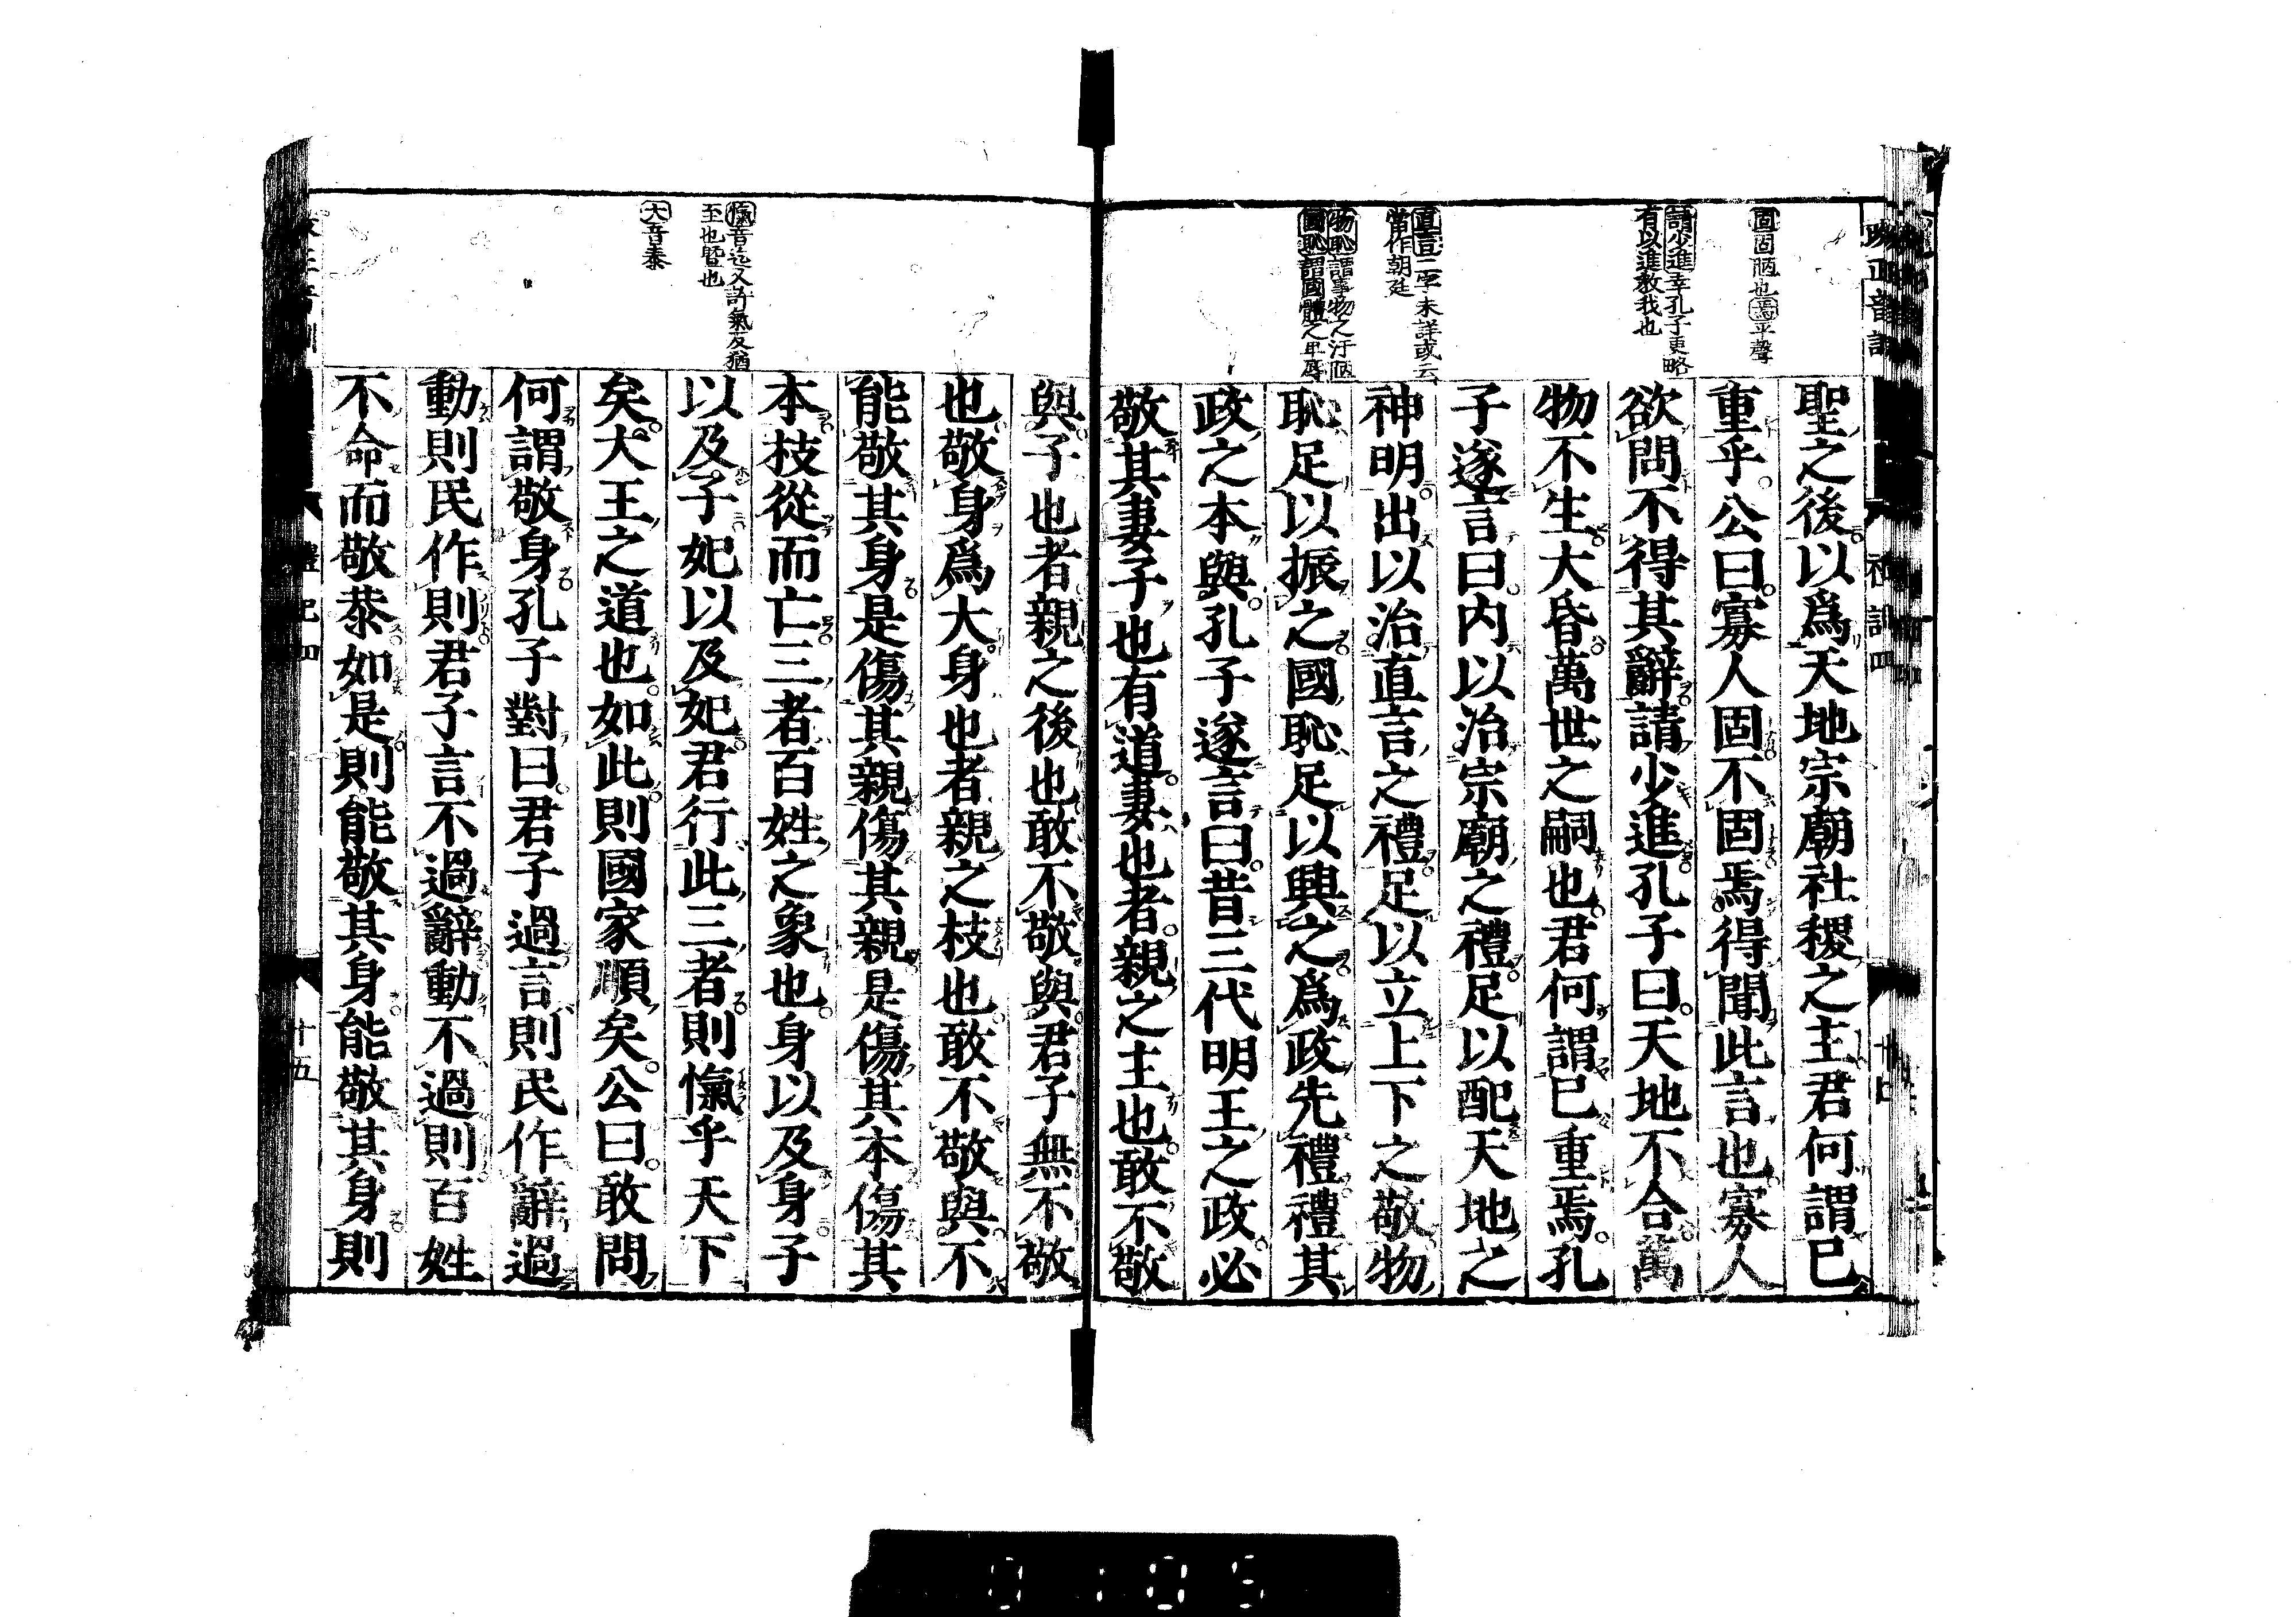 改正音訓
禮記四
固固陋也焉平聲
請少進幸孔子更略
有以進教我也
直言二字未詳或云
當作朝廷
物恥謂事物之汙陋
國恥謂國體之卑辱
聖之後以爲天地宗廟社稷之主君何謂已
重乎公曰寡人固不固焉得聞此言也寡人
欲問不得其辭請少進孔子曰天地不合萬
物不生大昏萬世之嗣也君何謂已重焉孔
子遂言曰内以治宗廟之禮足以配天地之
神明出以治直言之禮足以立上下之敬物
恥足以振之國恥足以興之爲政先禮禮其
政之本與孔子遂言曰昔三代明王之政必
敬其妻子也有道妻也者親之主也敢不敬
愾音迄又許氣反猶
至也曁也
大音泰
與子也者親之後也敢不敬與君子無不敬
也敬身爲大身也者親之枝也敢不敬與不
能敬其身是傷其親傷其親是傷其本傷其
本枝從而亡三者百姓之象也身以及身子
以及子妃以及妃君行此三者則愾乎天下
矣大王之道也如此則國家順矣公曰敢問
何謂敬身孔子對曰君子過言則民作辭過
動則民作則君子言不過辭動不過則百姓
不命而敬恭如是則能敬其身能敬其身則
禮記四
十五
0105